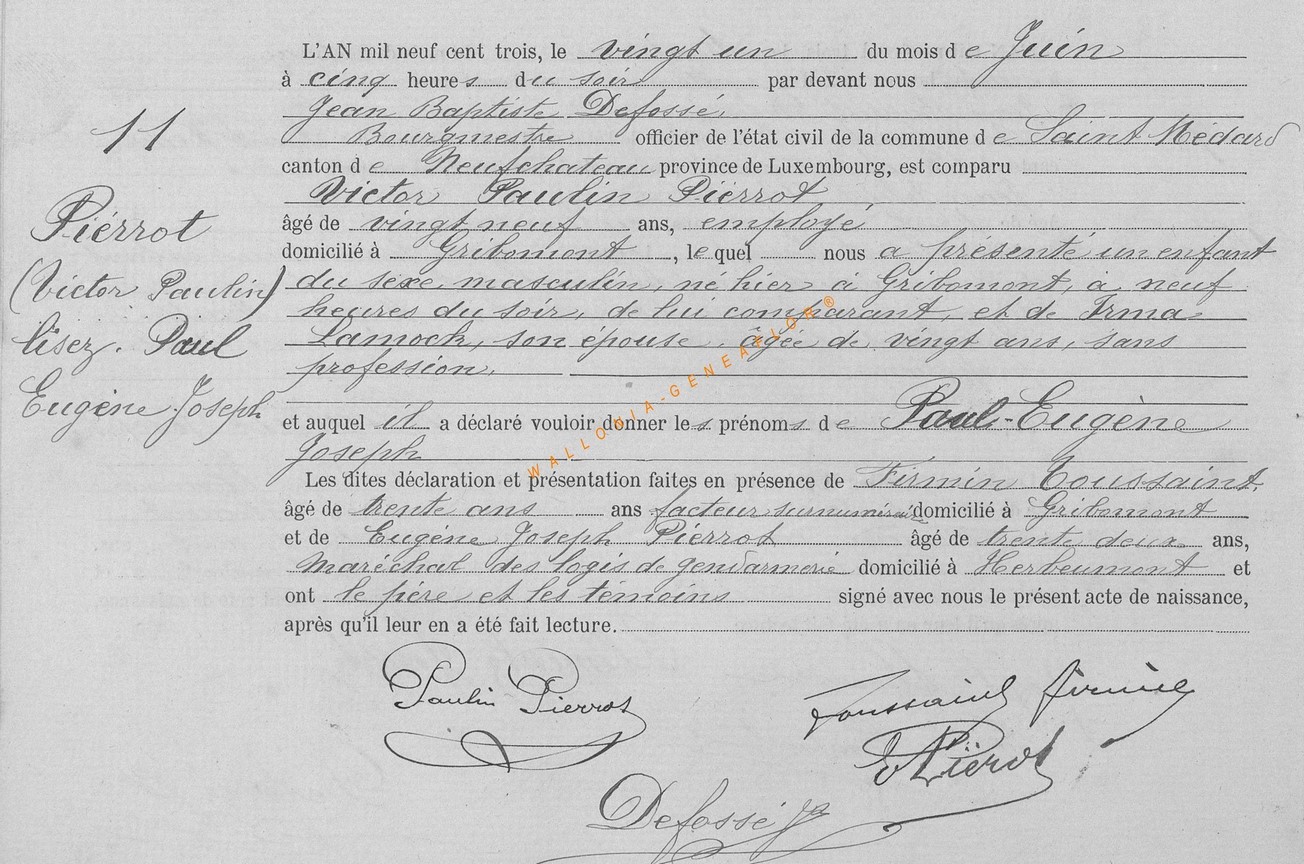 L'AN mil neuf cent trois, le vingt un du mois de Juin
à cinq heures du soir par devant nous
Jean Baptiste Defossé,
Bourgmestre officier de l'état civil de la commune de Saint Médard
canton de Neufchateau province de Luxembourg, est comparu
Victor Paulin Piérrot
âgé de vingt neuf ans, employé
domicilié à Gribomont, lequel nous a présenté un enfant
du sexe masculin, né hier à Gribomont, à neuf
heures du soir, de lui comparant, et de Irma
Lamock, son épouse, âgée de vingt ans, sans
profession,
et auquel il a déclaré vouloir donner les prénoms de Paul-Eugène
Joseph
Les dites déclaration et présentation faites en présence de Firmin Toussaint,
âgé de trente ans ans facteur surnuméraire domicilié à Gribomont
et de Eugène Joseph Piérrot âgé de trente deux ans,
Maréchal des logis de gendarmerie domicilié à Herbeumont et
ont le père et les témoins signé avec nous le présent acte de naissance,
après qu'il leur en a été fait lecture.
11
Piérrot
(Victor Paulin)
lisez. Paul
Eugène Joseph
WALLONIA-GENEALOR®
Paulin Pierrot
Toussaint Firmin
E Piérot
Defossé JB